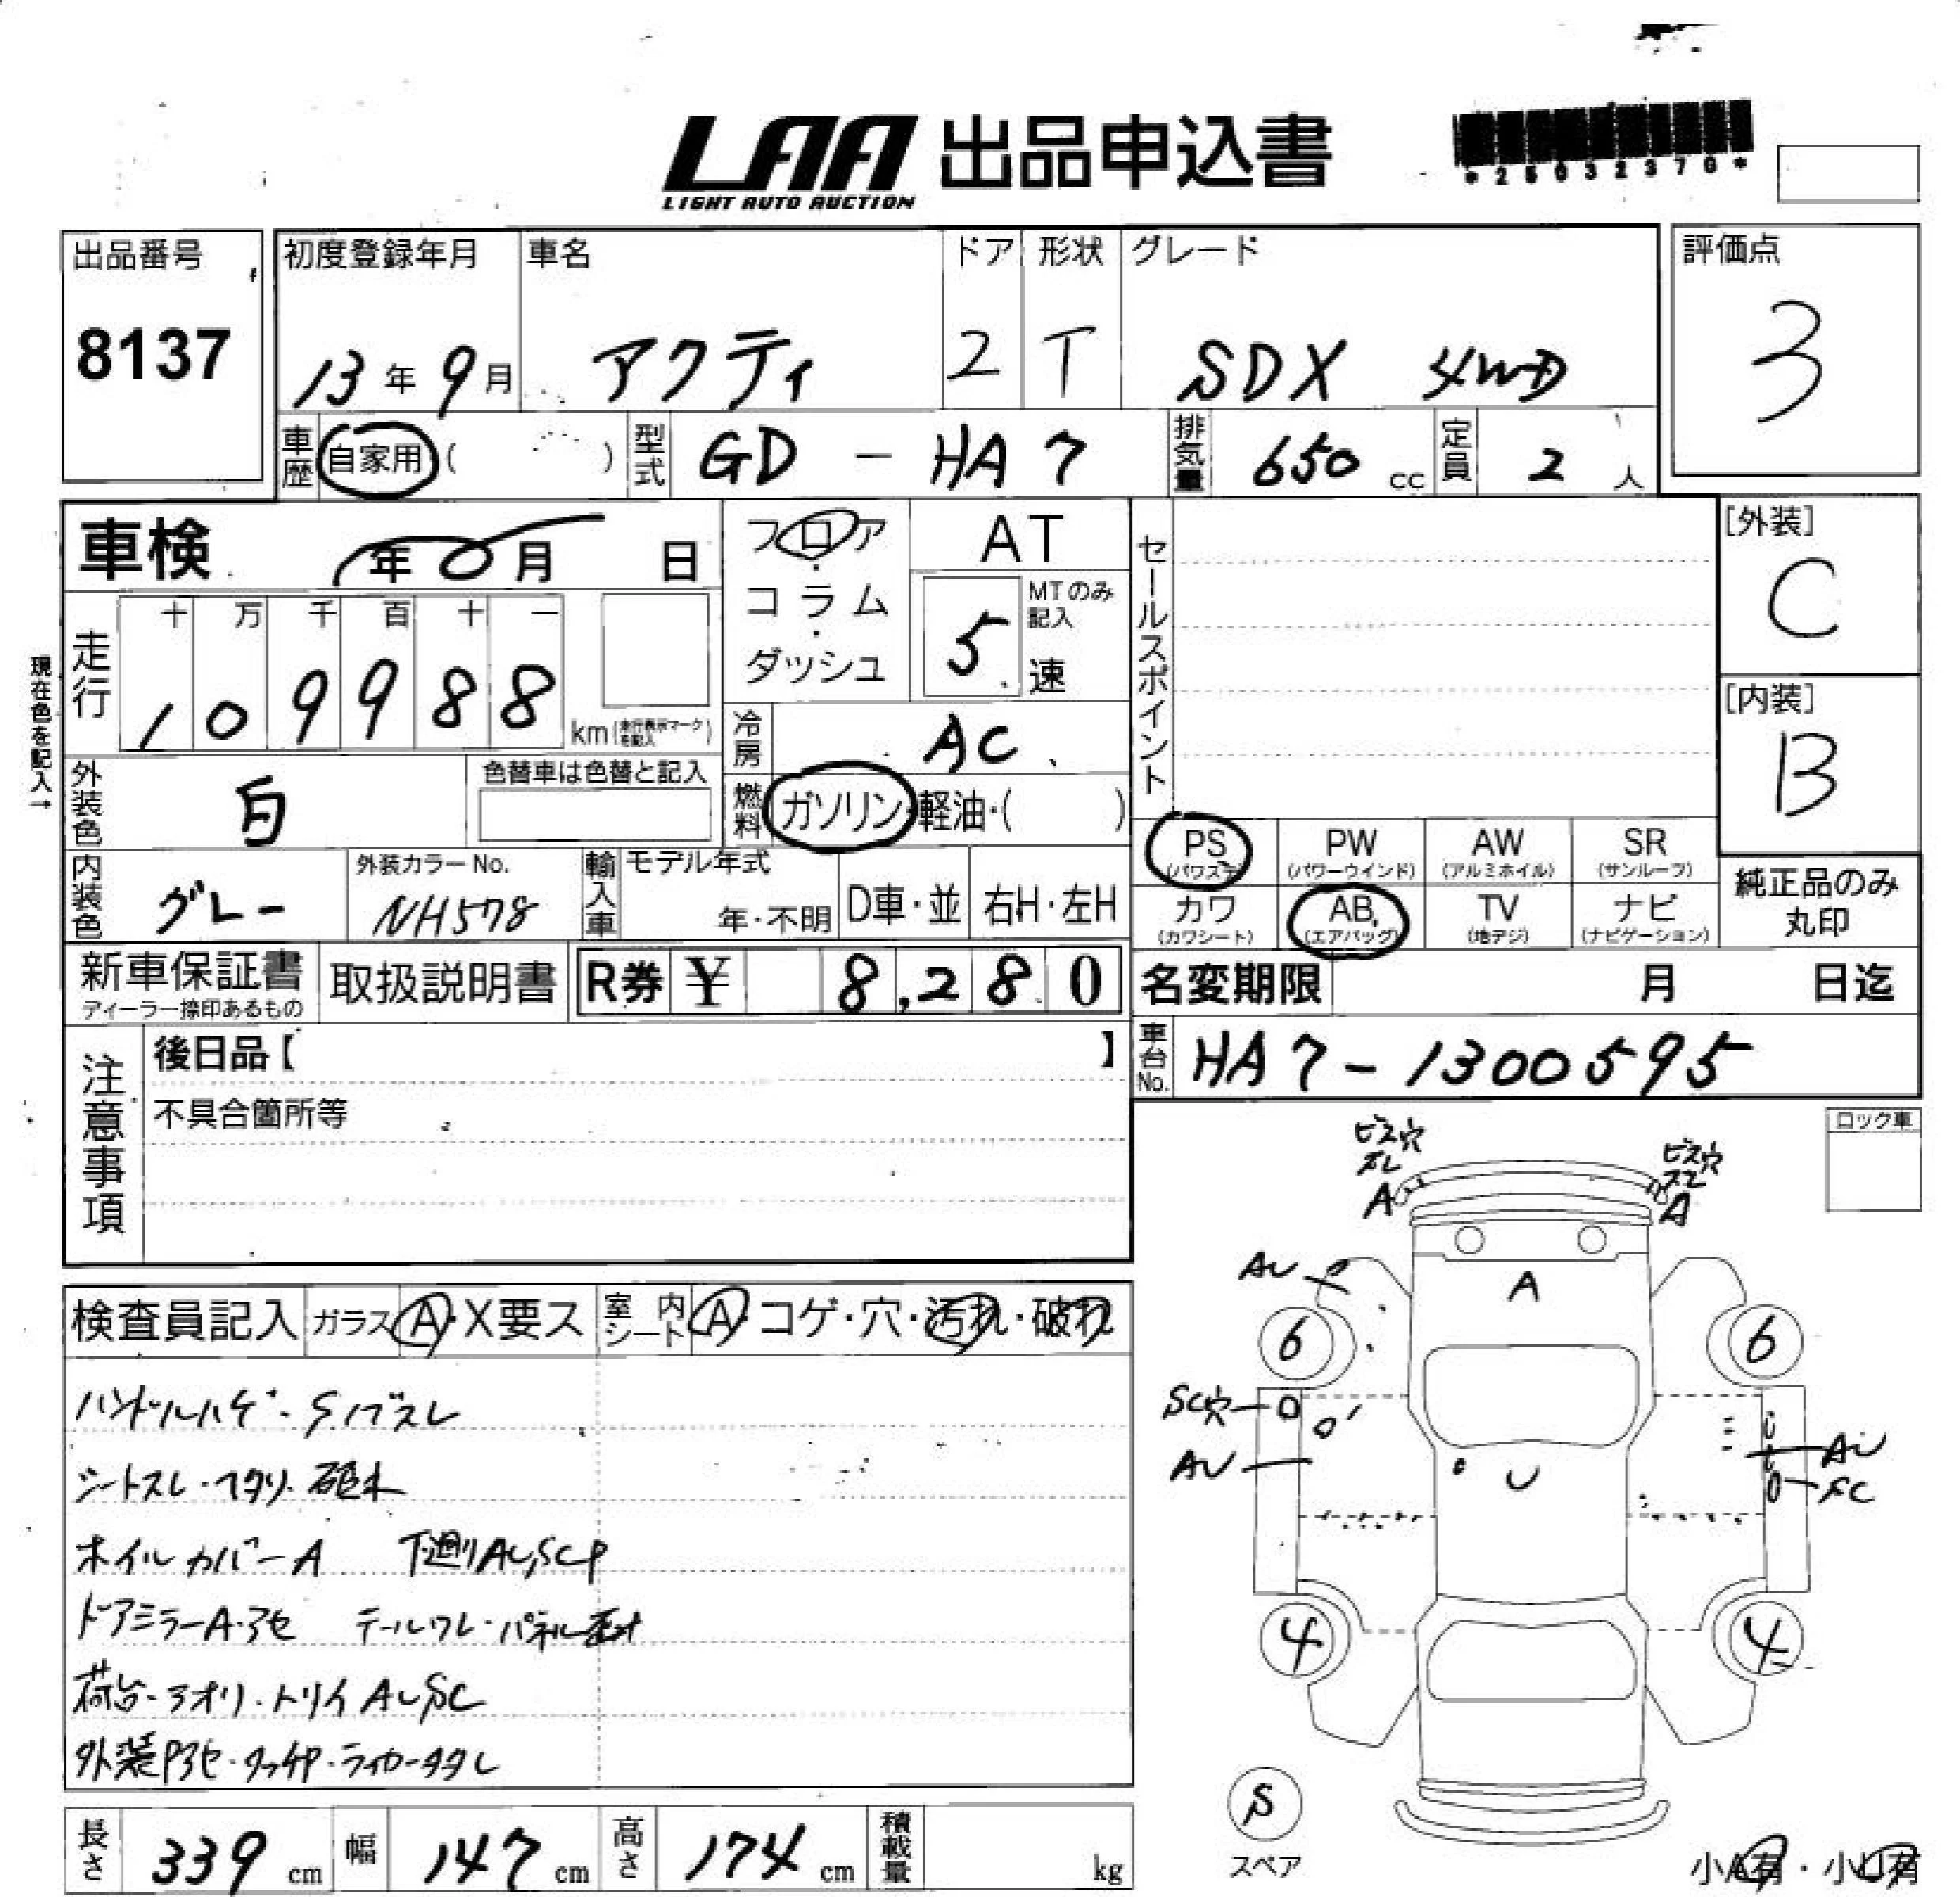 LAA 出品申込書
LIGHT AUTO AUCTION
*25032370*
出品番号
8137
初度登録年月
13年9月
車名
アクティ
ドア
2
形状
T
グレード
SDX 4WD
評価点
3
車歴 自家用 ( )
型式 GD - HA7
排気量 650 cc
定員 2 人
車検 年 0 月 日
フロア・コラム・ダッシュ
AT
5 速
MTのみ記入
セールスポイント
[外装]
C
[内装]
B
現在色を記入→
走行
十 万 千 百 十 一
1 0 9 9 8 8
km(走行表示マークを記入)
冷房 AC
燃料 ガソリン・軽油・( )
外装色 白
色替車は色替と記入
内装色 グレー
外装カラーNo.
NH578
輸入車
モデル年式
年・不明
D車・並
右H・左H
PS
(パワステ)
PW
(パワーウインド)
AW
(アルミホイル)
SR
(サンルーフ)
カワ
(カワシート)
AB
(エアバッグ)
TV
(地デジ)
ナビ
(ナビゲーション)
純正品のみ
丸印
新車保証書
ディーラー捺印あるもの
取扱説明書
R券 ¥ 8,280
名変期限 月 日迄
車台No. HA7-1300595
注意事項
後日品【 】
不具合箇所等
ロック車
ビス穴
ズレ
A
ビス穴
ズレ
A
AU
A
6
6
SC穴
AU
U
AU
SC
4
4
S
スペア
小A有・小U有
検査員記入
ガラス A・X要ス
室内シート A・コゲ・穴・汚れ・破れ
ハンドルハゲ・Sノブスレ
シートスレ・ヘタリ・破れ
ホイルカバーA 下廻りAU,SCP
ドアミラーA・アセ テールワレ・パネル歪
荷台・アオリ・トリイAU,SC
外装Pアセ・タッチP・
長さ 339 cm
幅 147 cm
高さ 174 cm
積載量 kg